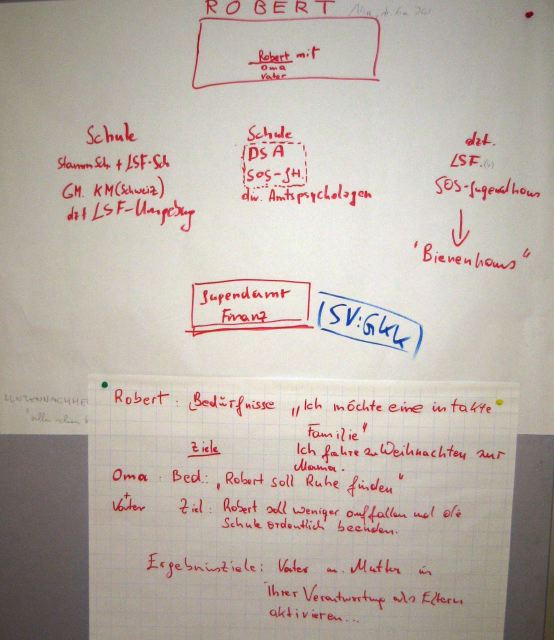 ROBERT
Robert mit
Oma
Vater
Schule
StammSch + LSF-Sch
GM. KM (Schweiz)
dzt LSF-Umgebung
Schule
DSA
SOS-JH.
div. Amtspsychologen
dzt.
LSF.
SOS-Jugendhaus
"Bienenhaus"
Jugendamt
Finanz
SV: GKK
Robert: Bedürfnisse „Ich möchte eine intakte
Familie"
Ziele Ich fahre zu Weihnachten zur
Mama.
Oma : Bed: „Robert soll Ruhe finden"
+
Vater Ziel: Robert soll weniger auffallen und die
Schule ordentlich beenden.
Ergebnisziele: Vater u. Mutter in
Ihrer Verantwortung als Eltern
aktivieren...